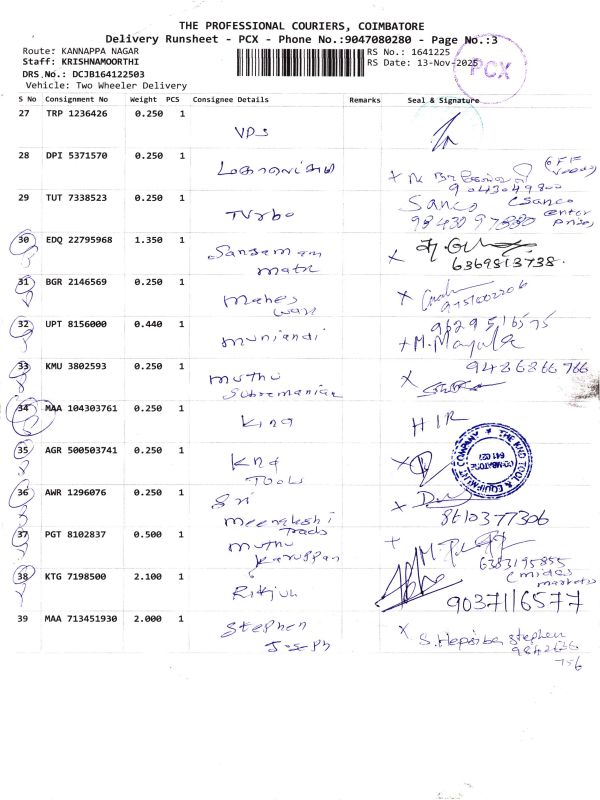 THE PROFESSIONAL COURIERS, COIMBATORE
Delivery Runsheet - PCX - Phone No.:9047080280 - Page No.:3
Route: KANNAPPA NAGAR RS No.: 1641225
Staff: KRISHNAMOORTHI RS Date: 13-Nov-2025
PCX
DRS.No.: DCJB164122503
Vehicle: Two Wheeler Delivery
S No Consignment No Weight PCS Consignee Details Remarks Seal & Signature
27 TRP 1236426 0.250 1 VPS
28 DPI 5371570 0.250 1
9043049800
29 TUT 7338523 0.250 1 Turbo Sanco (Sanco
enter
prises)
30 EDQ 22795968 1.350 1
6369813738.
31 BGR 2146569 0.250 1 Mahes
wari
32 UPT 8156000 0.440 1 muniandi
9629516575
M. Mayula
33 KMU 3802593 0.250 1 muthu
Subramanian
9486866766
34 MAA 104303761 0.250 1 King HIR
35 AGR 500503741 0.250 1 KND
TOOLS
THE KND TOOL & EQUIPMENT COMPANY
COIMBATORE
641 027
36 AWR 1296076 0.250 1 Sri
meenakshi
Trads
8610377306
37 PGT 8102837 0.500 1 muthu
karuppan
6383195855
(midas
market)
38 KTG 7198500 2.100 1
9037116577
39 MAA 713451930 2.000 1 Stephen
Joseph
S. Hepsiba Stephen
9842636
756